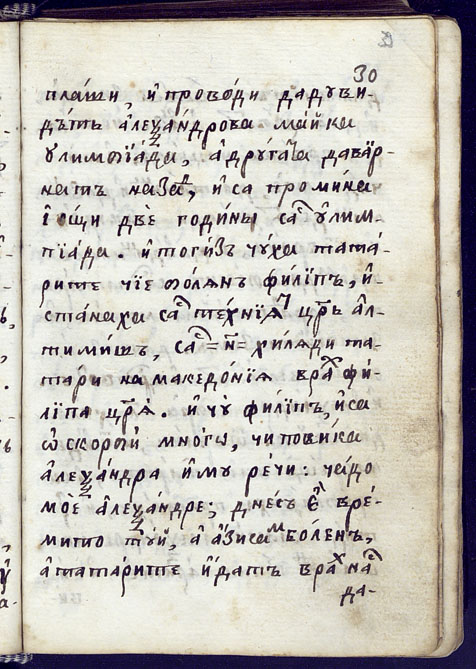 30
плати, и̓ проводи да доуви-
дѣтъ а̓леѯандрова майка
ѹлимпїада, а̓ дрꙋгаꙗ̀ давар-
натъ назаⷣ, и̓ са промина
ї ѡщи двѐ години саⷭ ѹлим-
пїада. и̓ тогизъ чꙋха тата-
рите чїе болѧнъ филїпъ, и̓-
станаха саⷭ технїѧⷮ цр҃ь а̓л-
тимишъ, саⷭ =н҃= хилѧди та-
тари на македонїѧ враⷯ фи-
лїпа цр҃ѧ. и̓ чꙋ филїпъ, и̓ са
ѡ҆скорби многѡ, чи повика
а̓леѯандра и̓ мꙋ речи: чѧдо
мое а̓леѯандре; днесъ є̓ⷭ вре-
мито твꙋй, а̓ а̓зи самⷨ боленъ,
а̓ татарите и̓датъ враⷯ наⷭ
да-